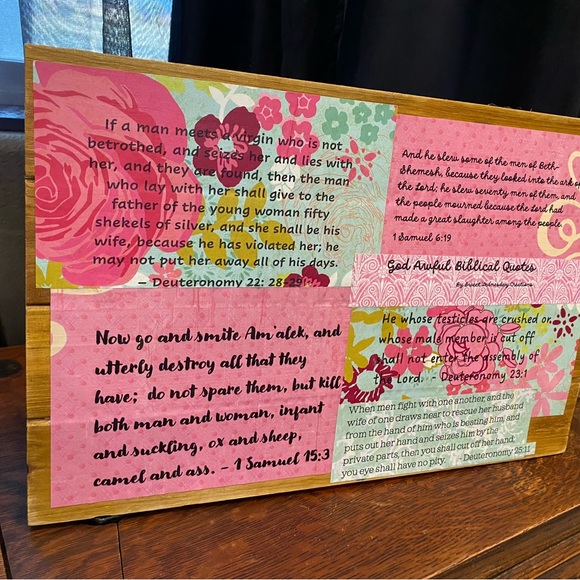 If a man meets a virgin who is not
betrothed, and seizes her and lies with
her, and they are found, then the man
who lay with her shall give to the
father of the young woman fifty
shekels of silver, and she shall be his
wife, because he has violated her; he
may not put her away all of his days.
– Deuteronomy 22: 28-29
And he slew some of the men of Beth-
Shemesh, because they looked into the ark of
the Lord; he slew seventy men of them, and
the people mourned because the Lord had
made a great slaughter among the people.
1 Samuel 6:19
God Awful Biblical Quotes
By Sweet Wednesday Creations
Now go and smite Am'alek, and
utterly destroy all that they
have; do not spare them, but kill
both man and woman, infant
and suckling, ox and sheep,
camel and ass. – 1 Samuel 15:3
He whose testicles are crushed or
whose male member is cut off
shall not enter the assembly of
the Lord. - Deuteronomy 23:1
When men fight with one another, and the
wife of one draws near to rescue her husband
from the hand of him who is beating him, and
puts out her hand and seizes him by the
private parts, then you shall cut off her hand,
you eye shall have no pity. Deuteronomy 25:11